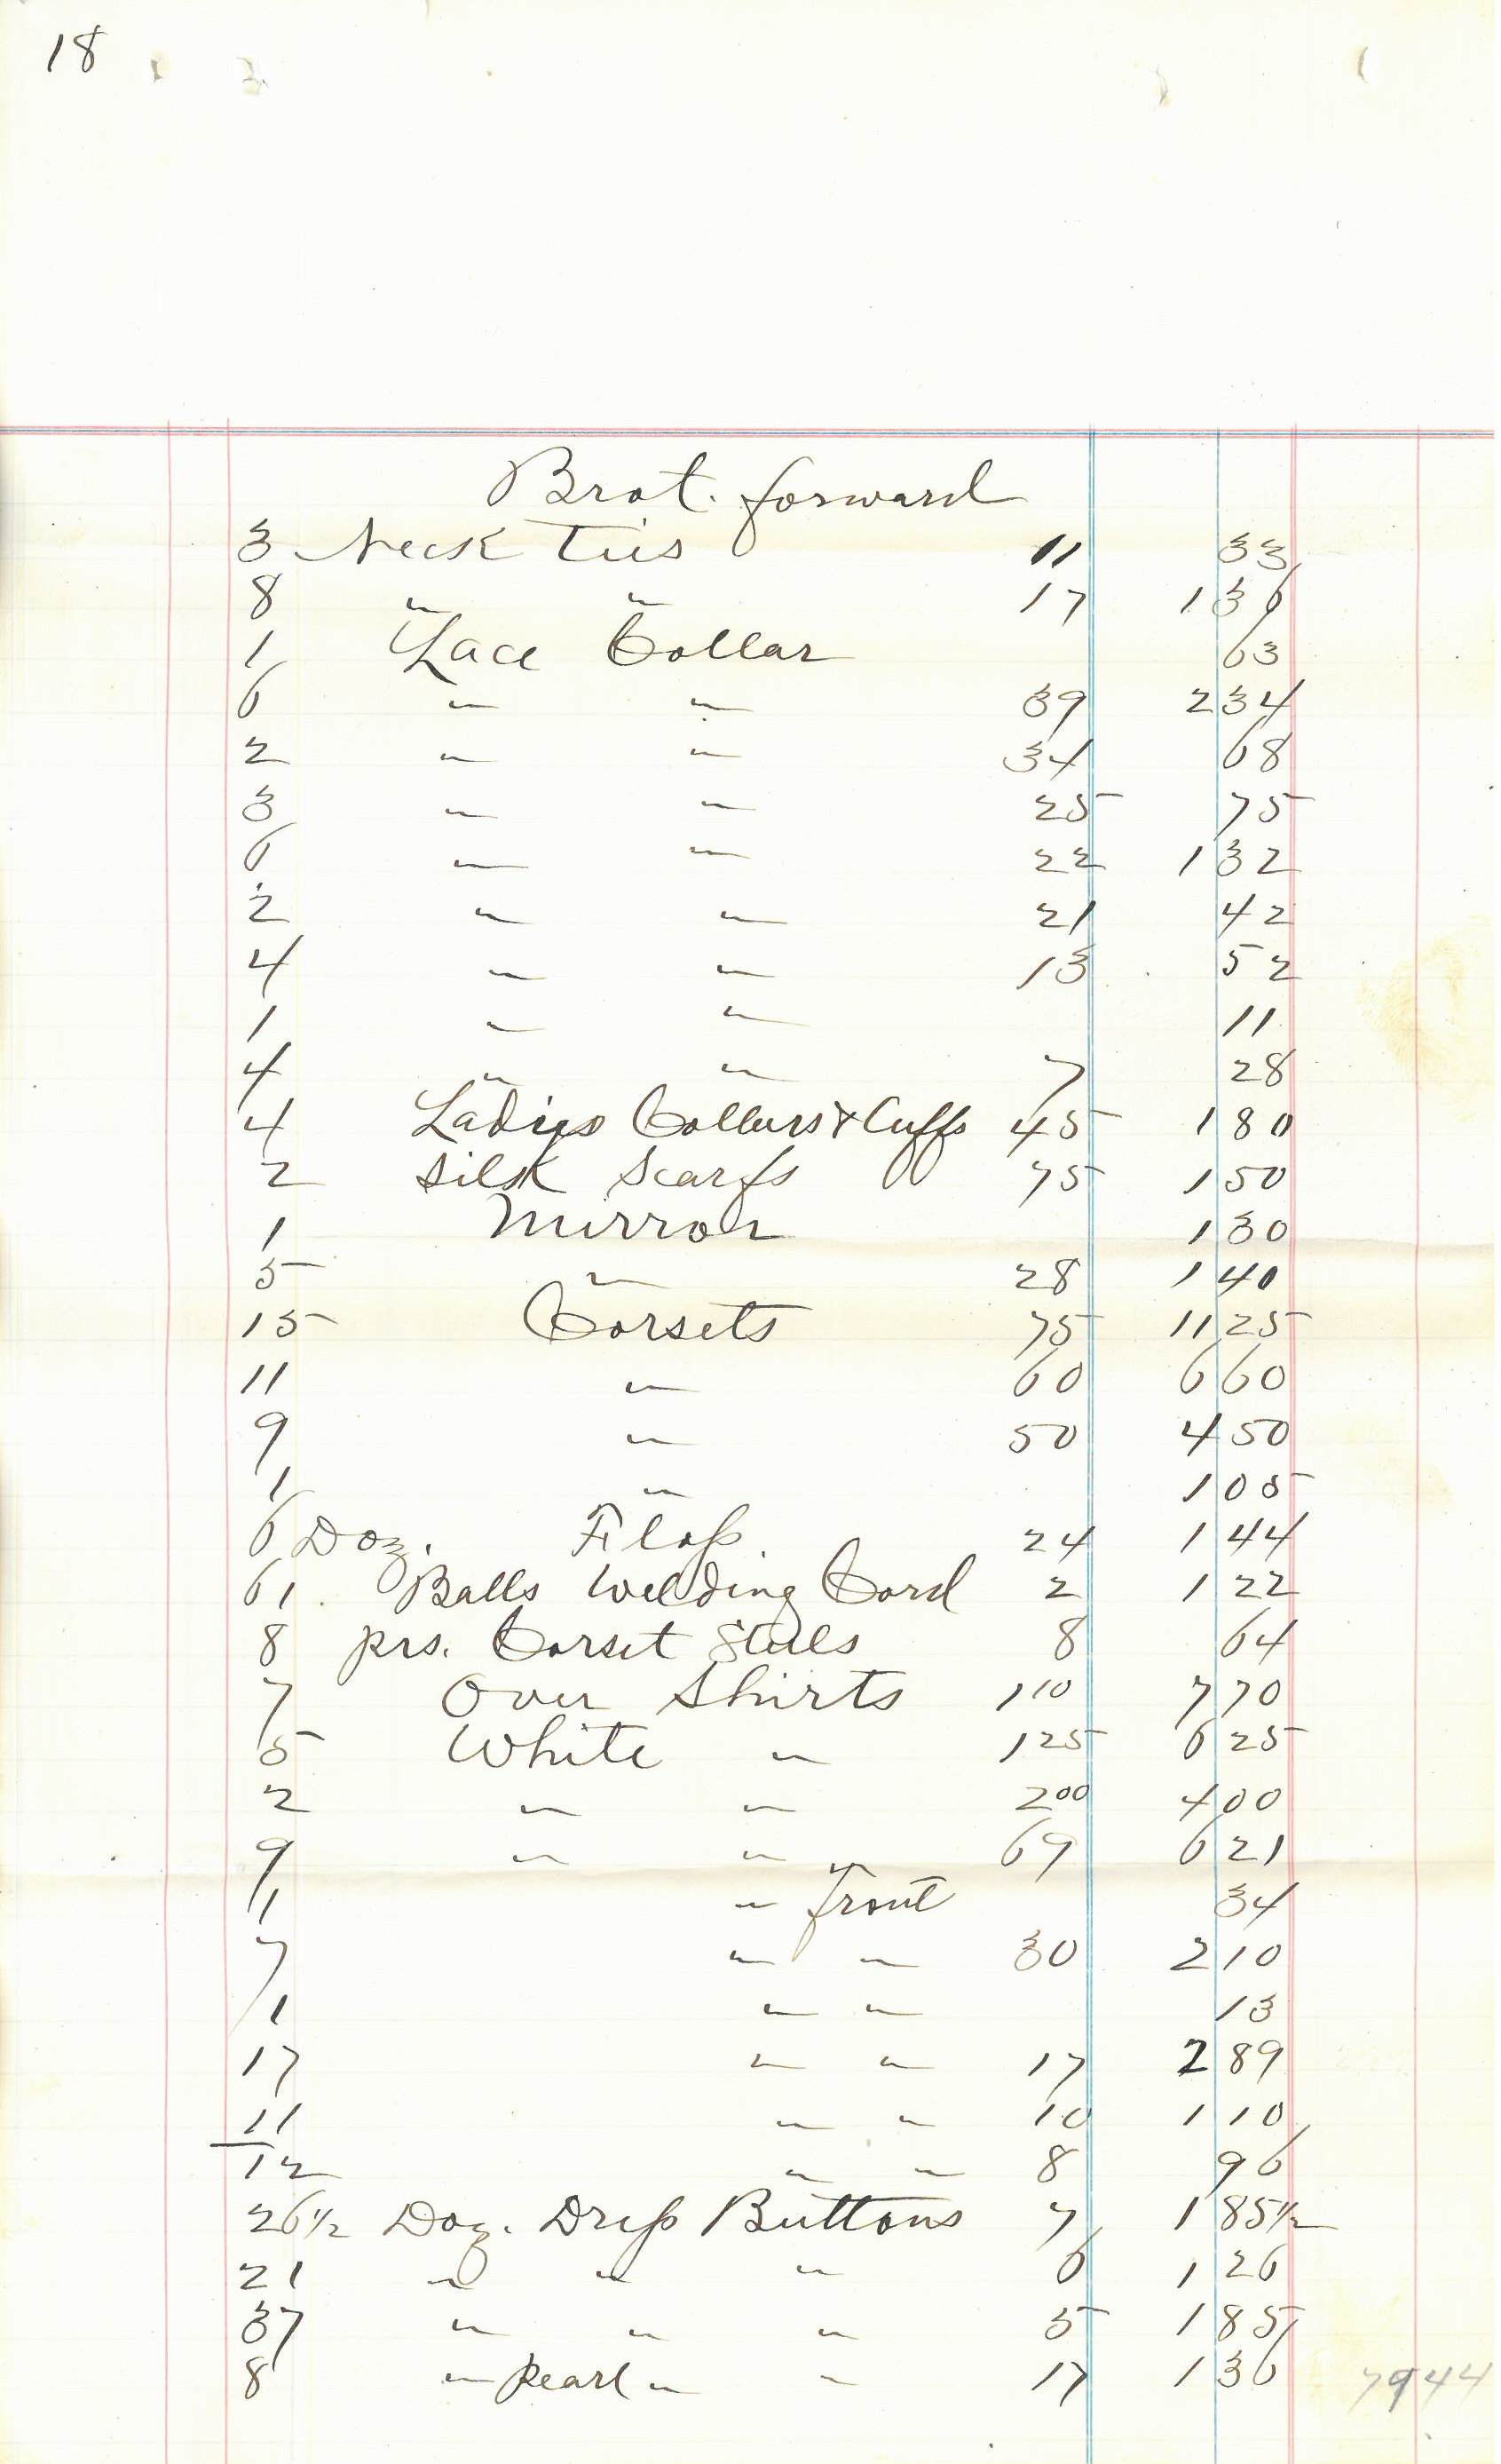 18
Brot. forward
3 Neck Ties 11 33
8 " " 17 1 36
1 Lace Collar 63
6 " " 39 2 34
2 " " 34 68
3 " " 25 75
6 " " 22 1 32
2 " " 21 42
4 " " 13 52
1 " " 11
4 " " 7 28
4 Ladies Collars & Cuffs 45 1 80
2 Silk Scarfs 75 1 50
1 Mirror 1 30
5 " 28 1 40
15 Corsets 75 11 25
11 " 60 6 60
9 " 50 4 50
1 " 1 05
6 Doz. Floss 24 1 44
61 Balls Welding Cord 2 1 22
8 prs. Corset Steels 8 64
7 Over Shirts 1 10 7 70
5 White " 1 25 6 25
2 " " 2 00 4 00
9 " " 69 6 21
1 " front 34
7 " " 30 2 10
1 " " 13
17 " " 17 2 89
11 " " 10 1 10
12 " " 8 96
26½ Doz. Dress Buttons 7 1 85½
21 " " " 6 1 26
37 " " " 5 1 85
8 " Pearl " " 17 1 36 7944